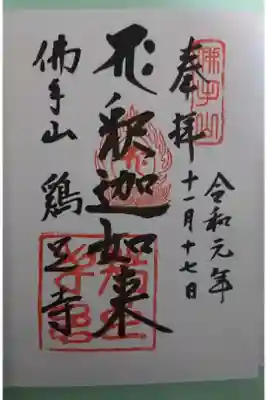 佛手山
奉拝
令和元年
十一月十七日
釈迦如来
佛手山 鶏足寺